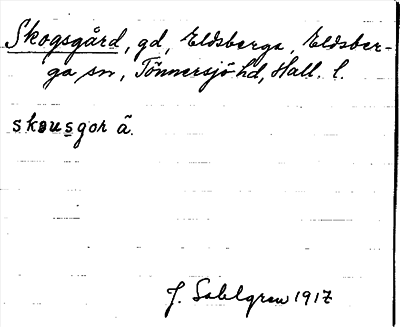 Skogsgård, gd, Eldsberga, Eldsber-
ga sn, Tönnersjö hd, Hall. l.
skousgoh ã.
J. Sahlgren 1917